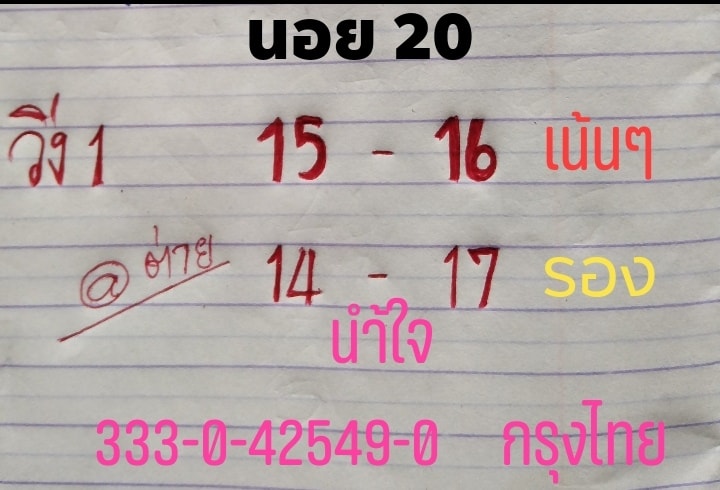 นอย 20
วิ่ง 1 15 - 16 เน้นๆ
@ ต่าย 14 - 17 รอง
นำ้ใจ
333-0-42549-0 กรุงไทย